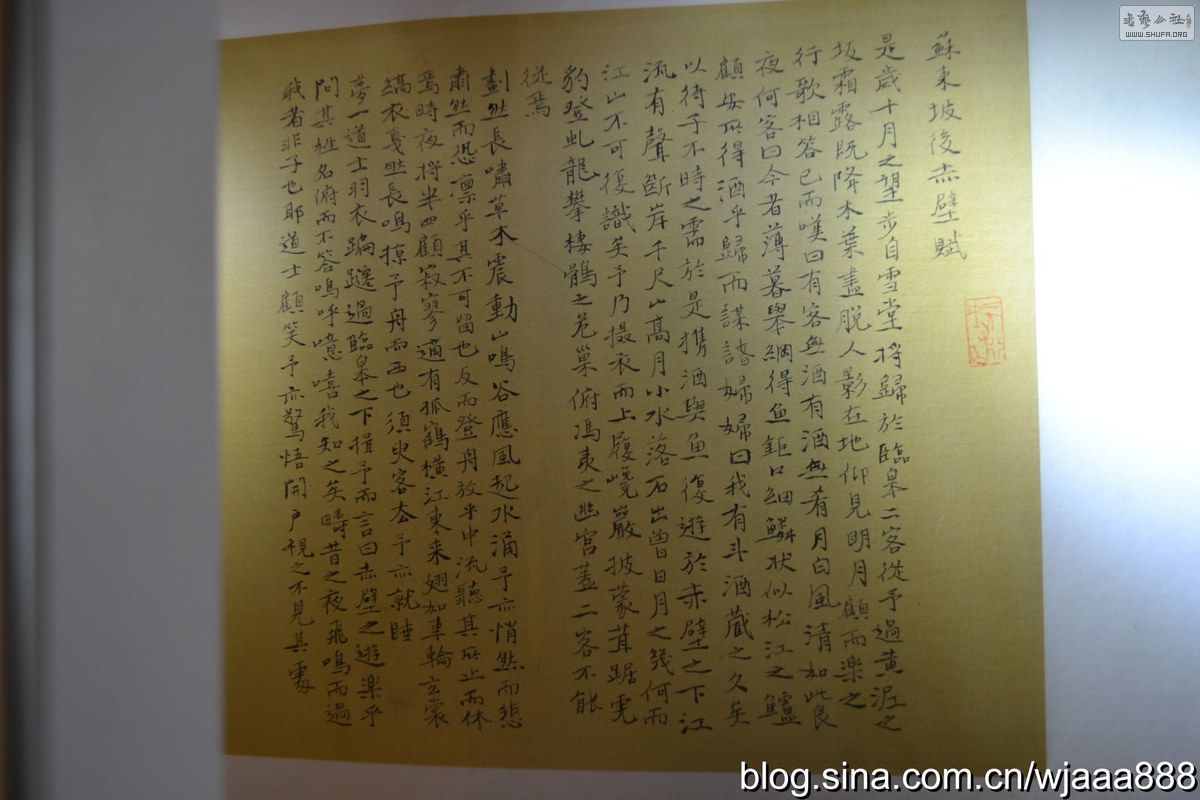 蘇東坡後赤壁賦
是歲十月之望步自雪堂將歸於臨皋二客從予過黃泥之
坂霜露既降木葉盡脫人影在地仰見明月顧而楽之
行歌相答已而嘆曰有客無酒有酒無肴月白風清如此良
夜何客曰今者薄暮舉網得魚鉅口細鱗狀似松江之鱸
顧安所得酒乎歸而謀諸婦婦曰我有斗酒藏之久矣
以待子不時之需於是攜酒與魚復遊於赤壁之下江
流有聲斷岸千尺山高月小水落石出曾日月之幾何而
江山不可復識矣予乃攝衣而上履巉巖披蒙茸踞虎
豹登虬龍攀棲鶻之危巢俯馮夷之幽宮蓋二客不能
從焉
劃然長嘯草木震動山鳴谷應風起水涌予亦悄然而悲
肅然而恐凜乎其不可留也反而登舟放乎中流聽其所止而休
焉時夜將半四顧寂寥適有孤鶴橫江東来翅如車輪玄裳
縞衣戛然長鳴掠予舟而西也須臾客去予亦就睡
夢一道士羽衣蹁躚過臨皋之下揖予而言曰赤壁之遊樂乎
問其姓名俯而不答嗚呼噫嘻我知之矣疇昔之夜飛鳴而過
我者非子也耶道士顧笑予亦驚悟開戶視之不見其處
书艺公社
WWW.SHUFA.ORG
blog.sina.com.cn/wjaaa888